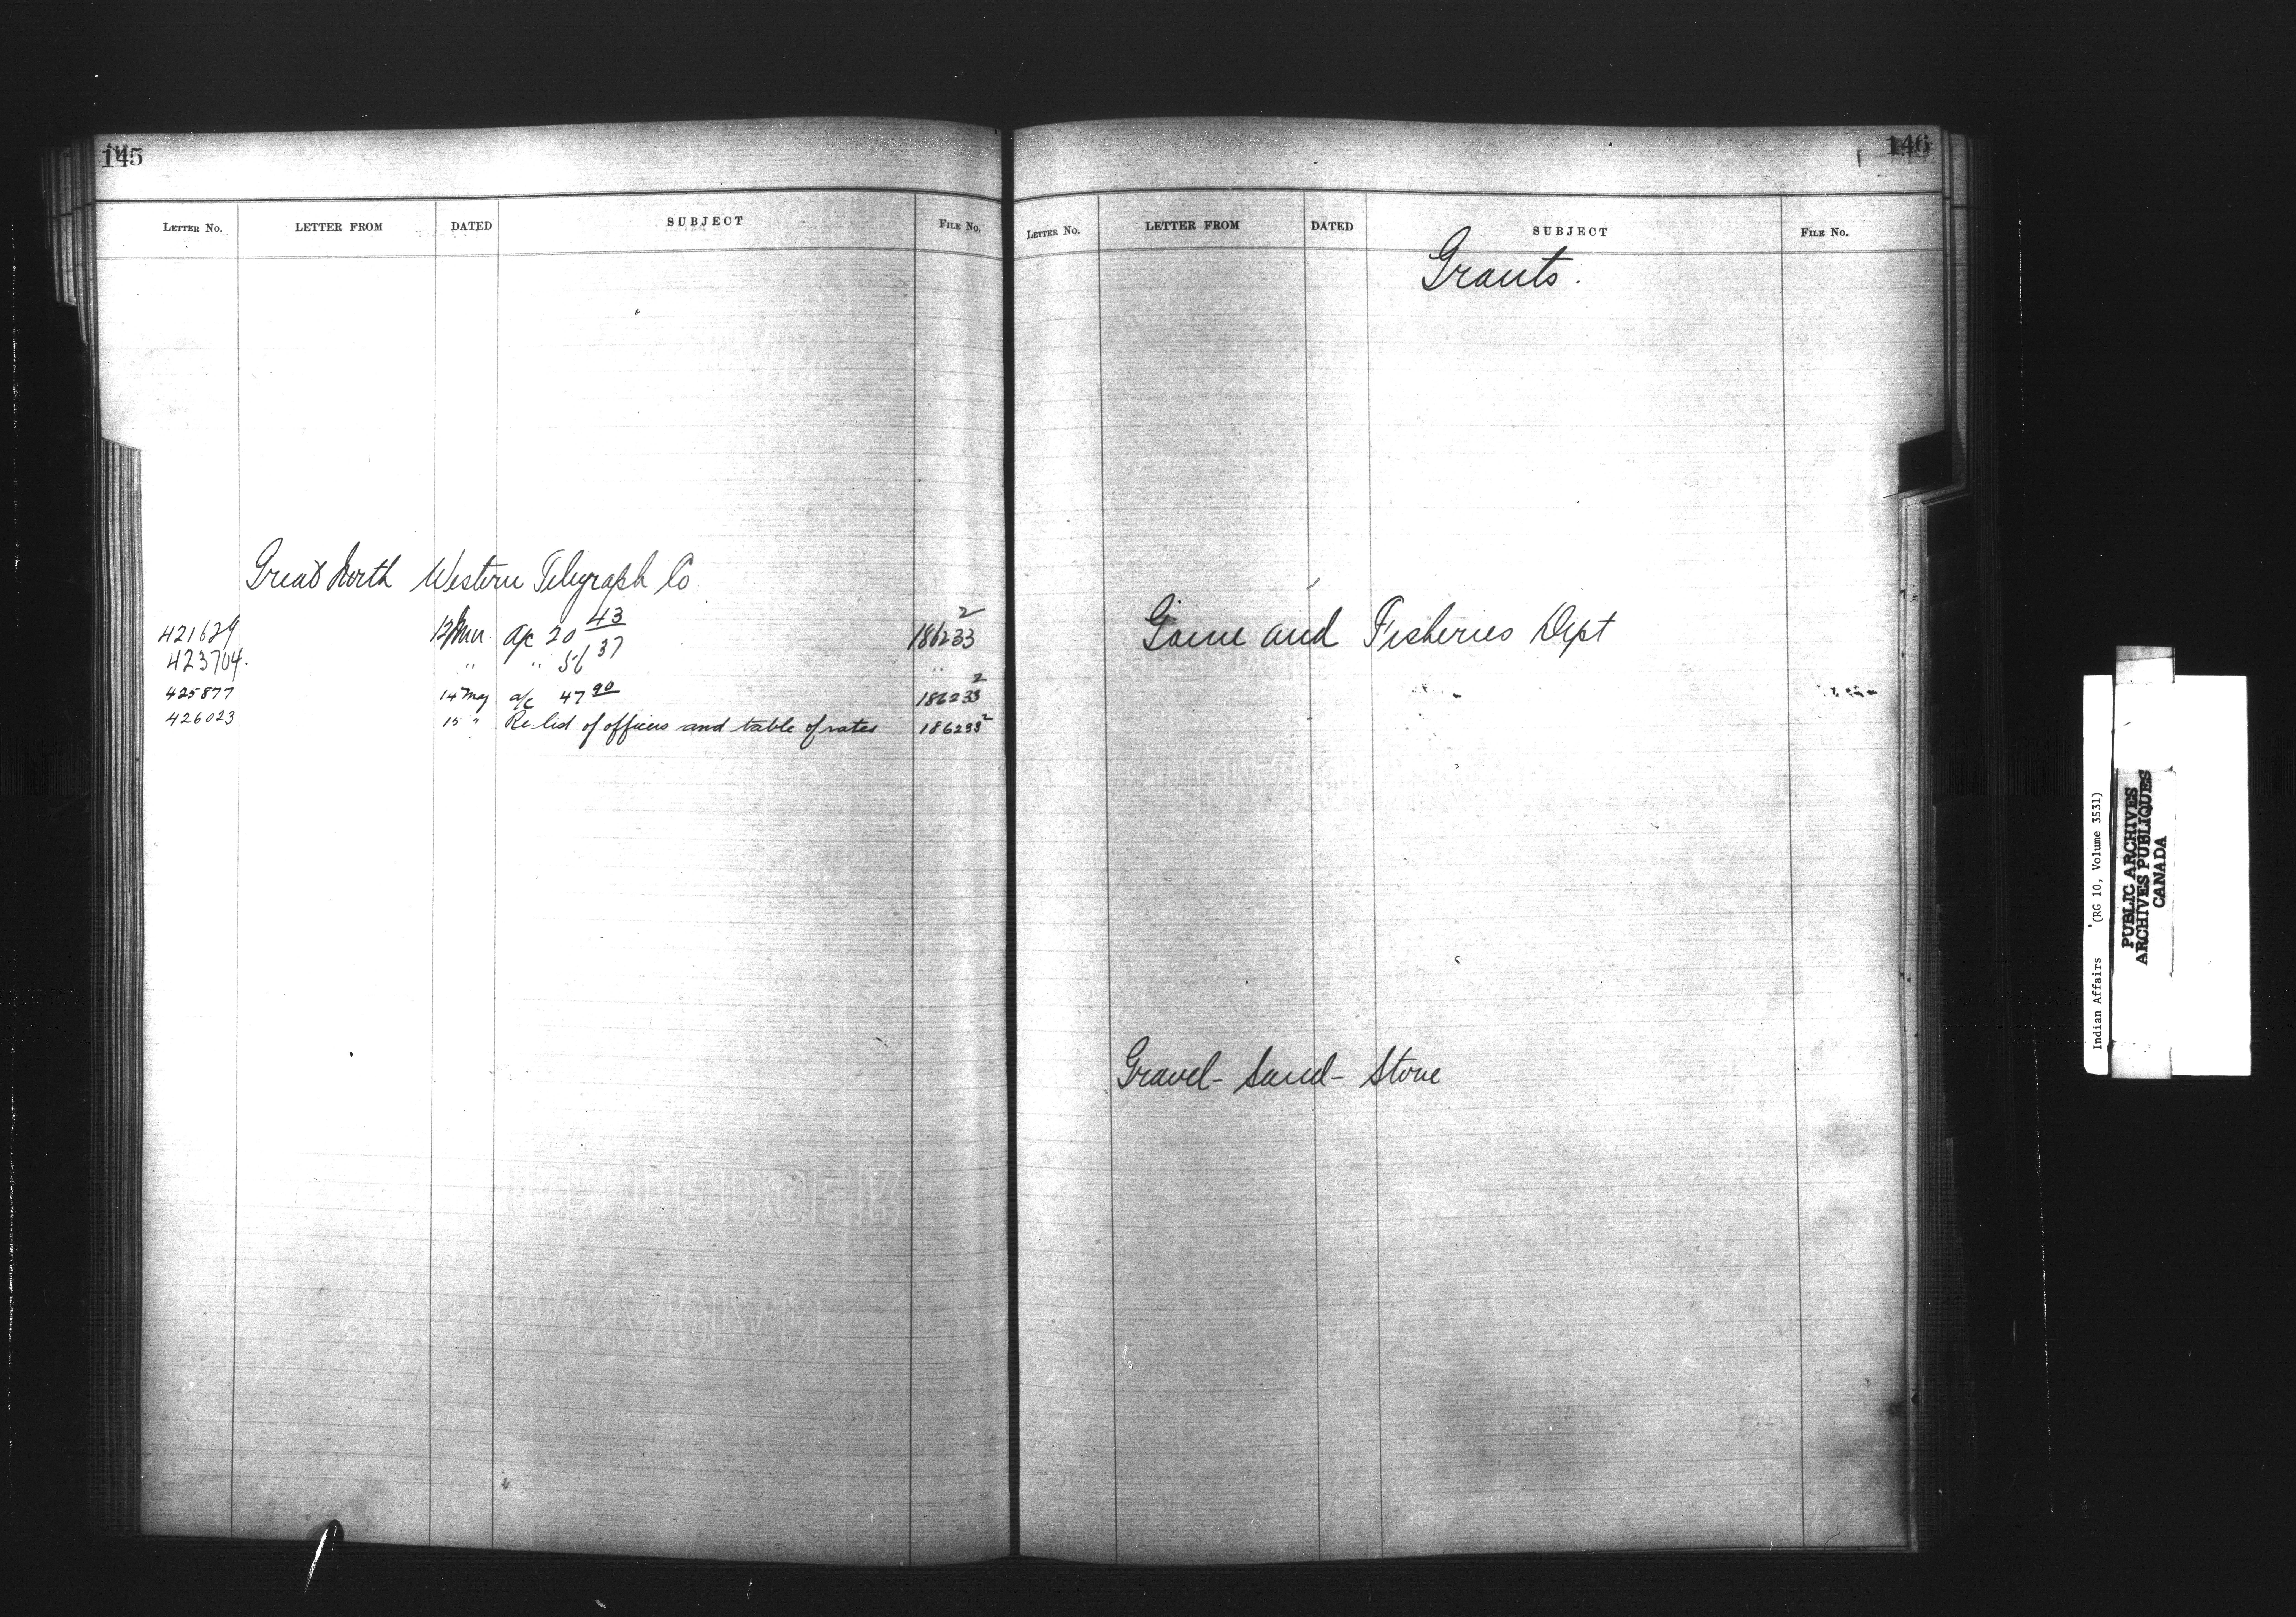 145
LETTER No. LETTER FROM DATED SUBJECT FILE No.
Great North Western Telegraph Co
421629 12 a/c 20 43 186233 2
423704. " " 56 37 "
425877 14 May a/c 47 90 186233 2
426023 15 " Re list of offices and table of rates 186233 2
146
LETTER No. LETTER FROM DATED SUBJECT FILE No.
Grants.
Game and Fisheries Dept
Gravel - Sand - Stone
Indian Affairs (RG 10, Volume 3531)
PUBLIC ARCHIVES
ARCHIVES PUBLIQUES
CANADA